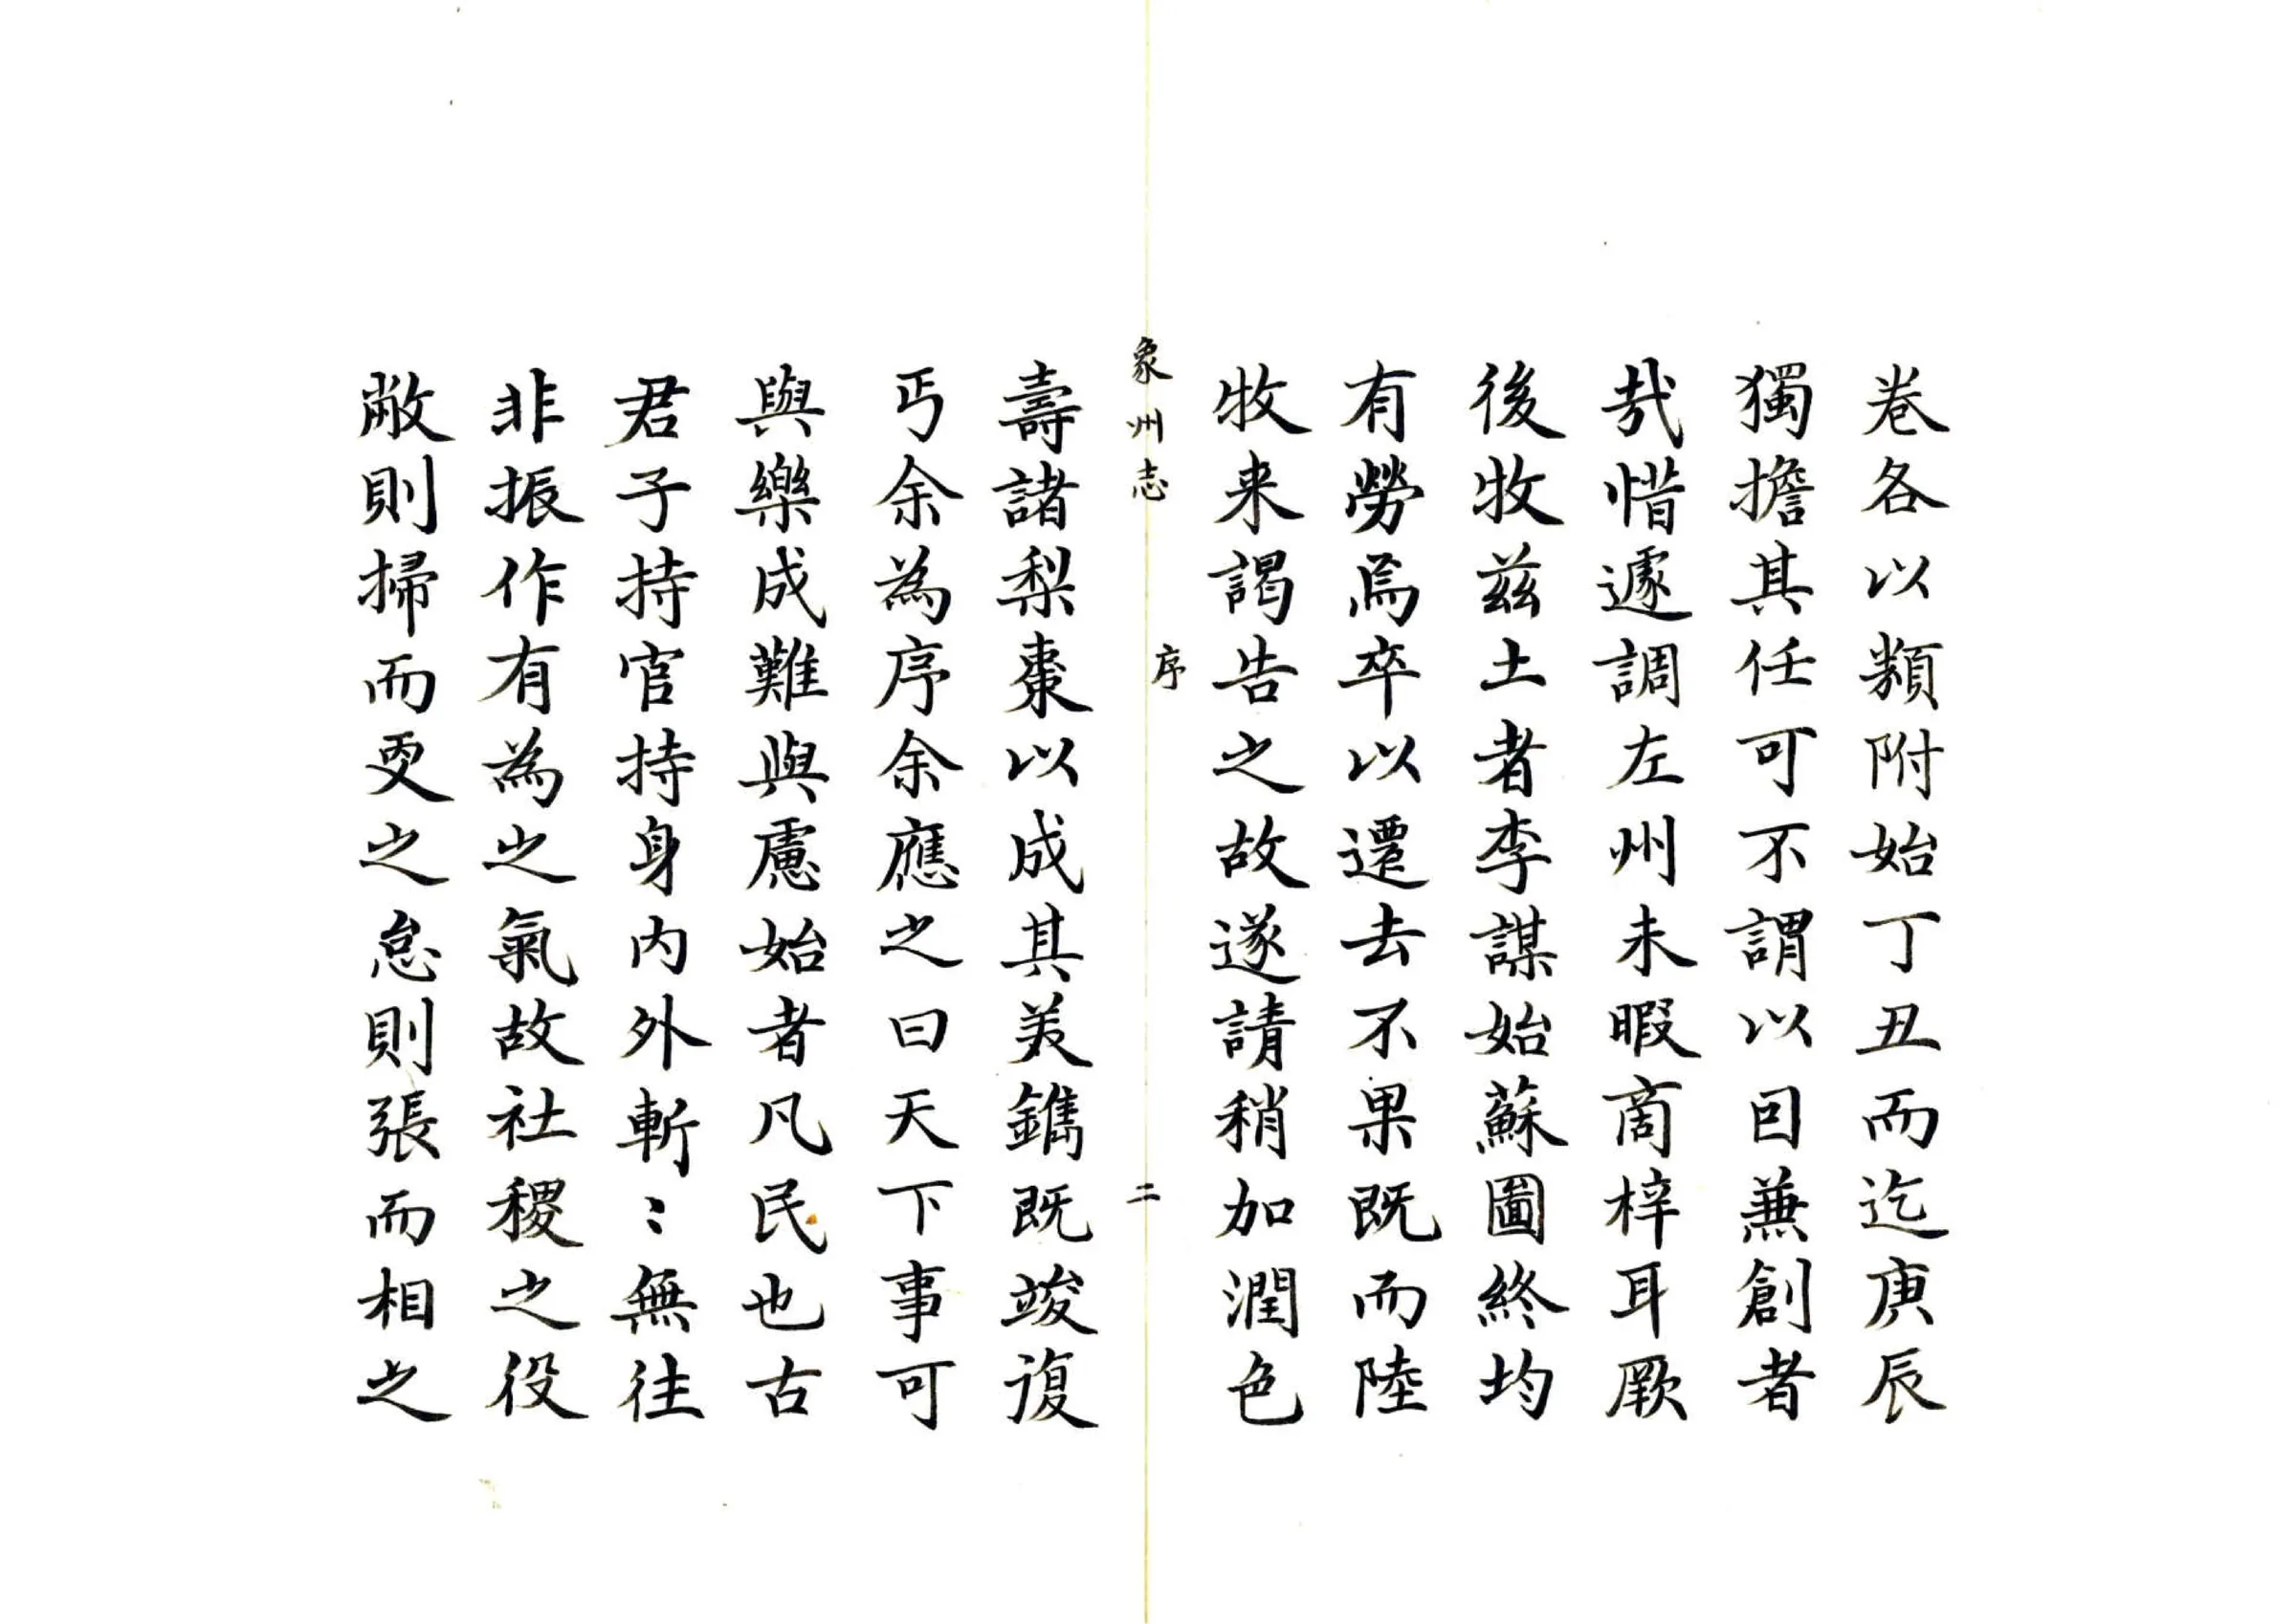 卷各以類附始丁丑而迄庚辰
獨擔其任可不謂以因兼創者
哉惜遽調左州未暇商梓耳厥
後牧兹土者李謀始蘇圖終均
有勞焉卒以遷去不果既而陸
牧来謁告之故遂請稍加潤色
象州志 序 二
壽諸梨棗以成其美鐫既竣復
丐余為序余應之曰天下事可
與樂成難與慮始者凡民也古
君子持官持身内外斬〻無往
非振作有為之氣故社稷之役
敝則掃而更之怠則張而相之